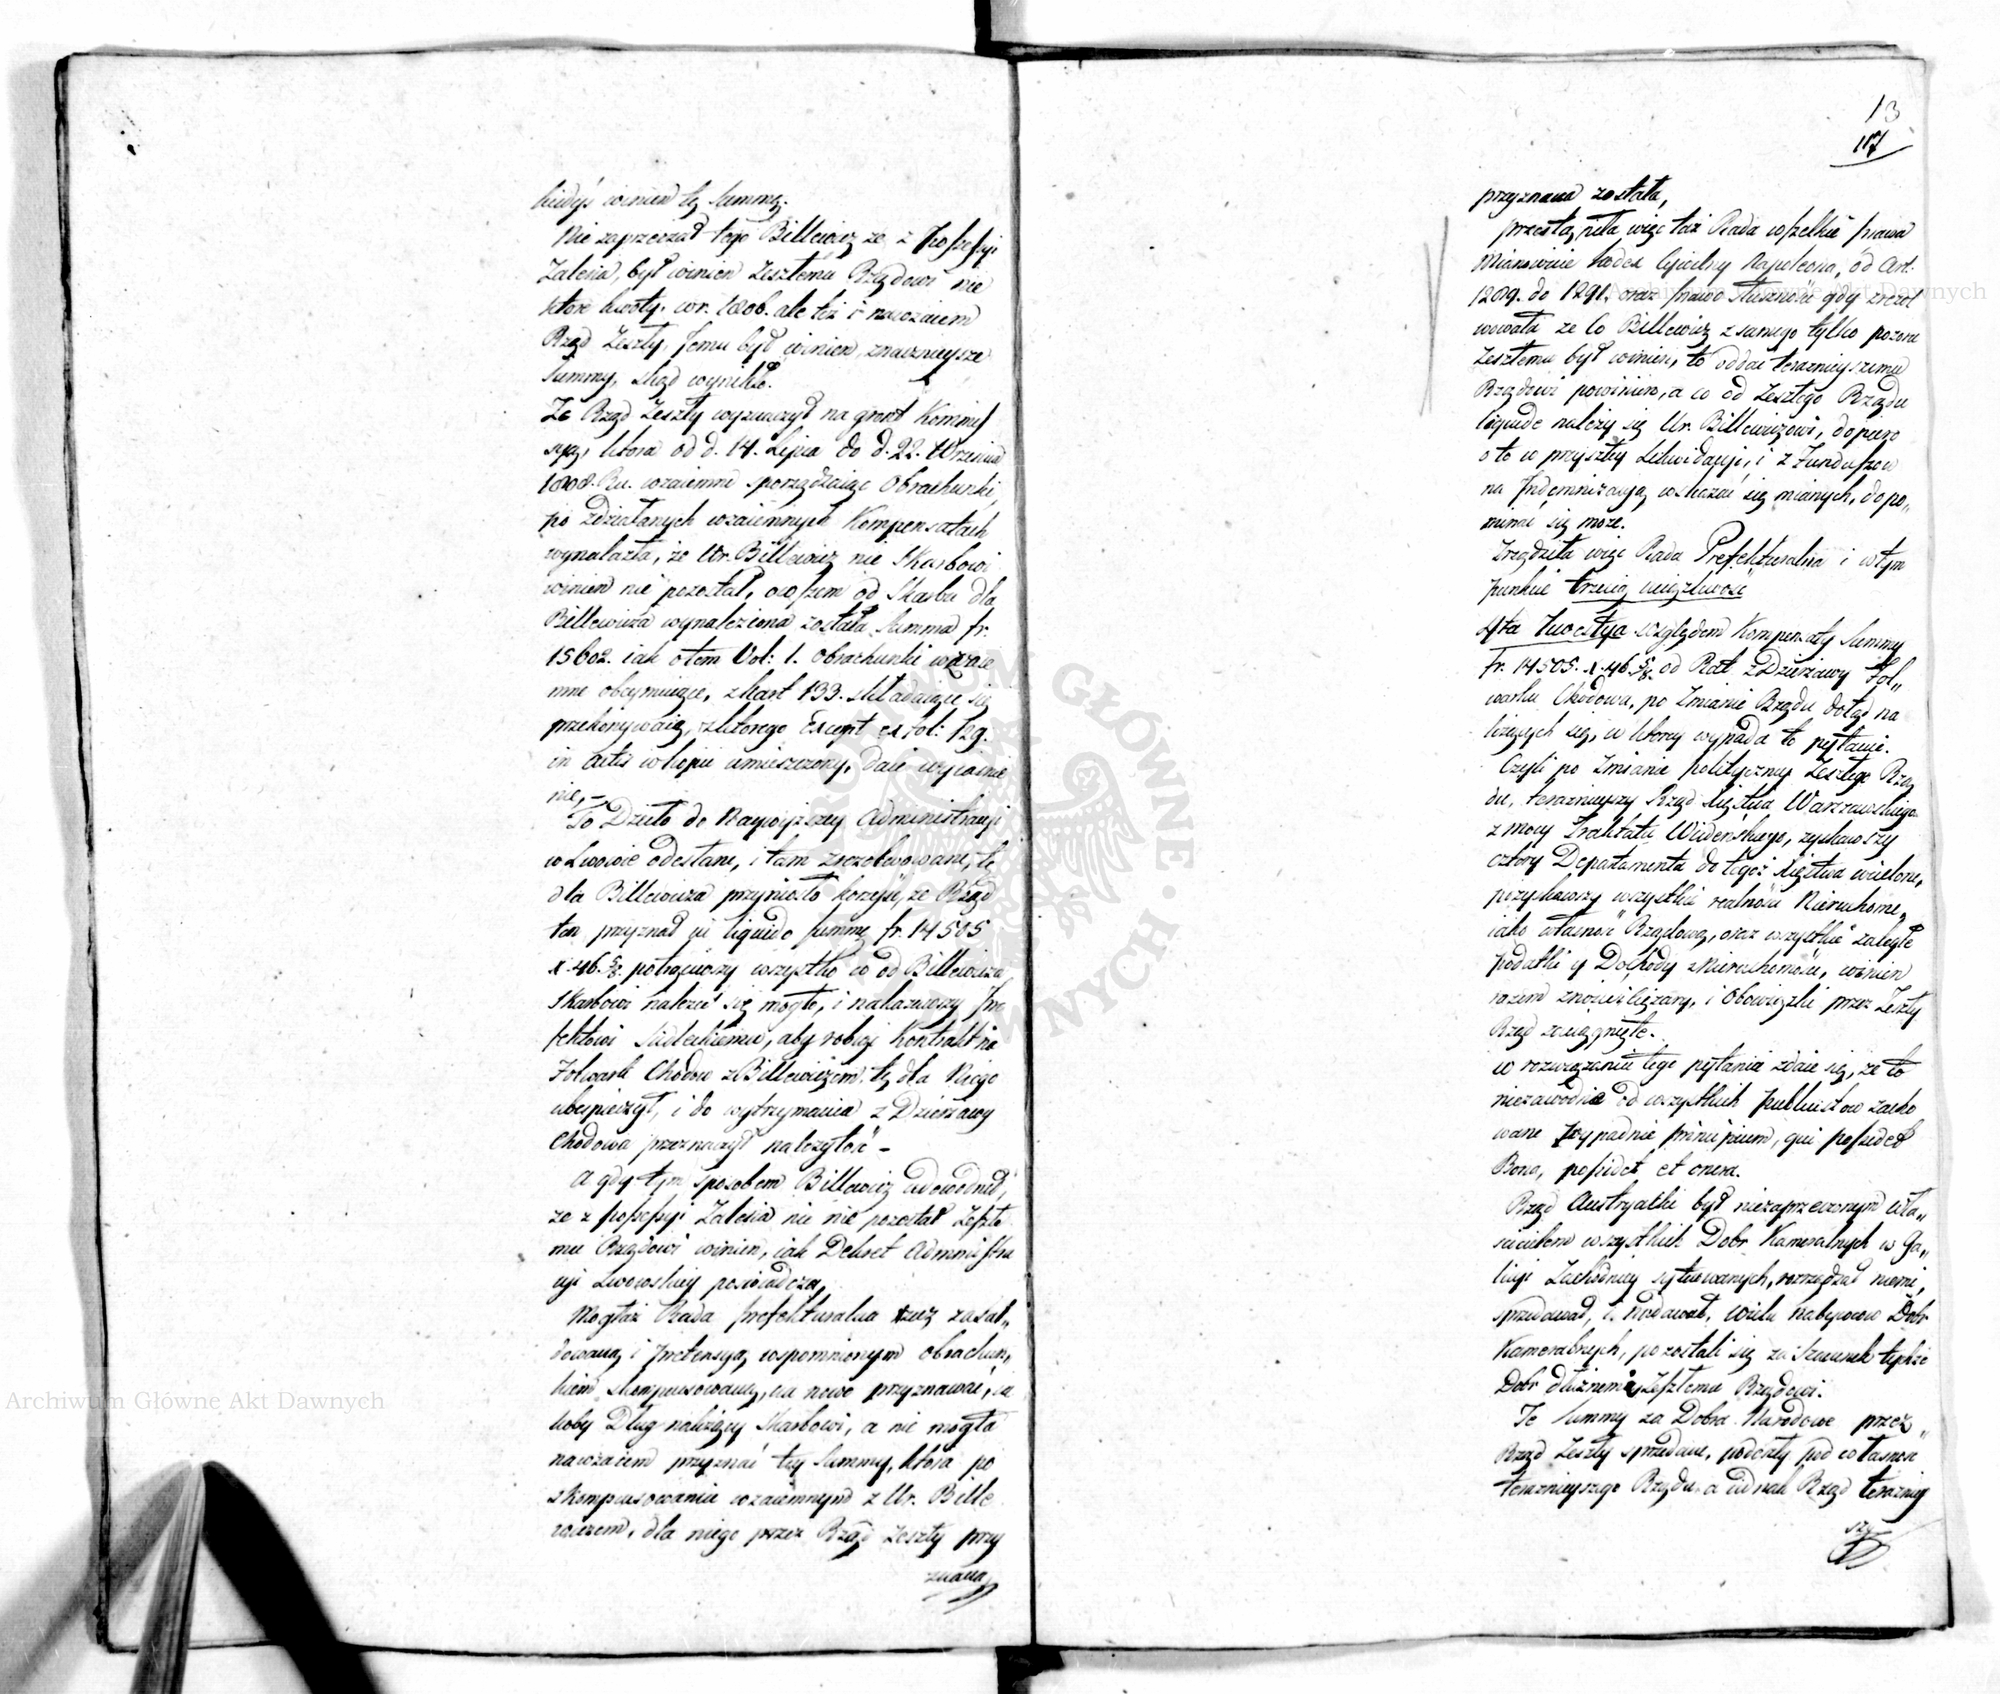 kiedyś winien tę Summę.
Nie zaprzeczał tego Billewicz że z Possessyi
Zalesia, był winien Zeszłemu Rządowi nie
które kwoty, w r. 1806. ale też i nawzaiem
Rząd Zeszły, Jemu był winien znacznieysze
Summy, skąd wynikło.
Że Rząd Zeszły wyznaczył na grunt Kommis
syą, ktora od d. 14. Lipca do d. 22. Września
1808. Ru. wzaiemne sporządzaiąc Obrachunki,
po zdziałanych wzaiemnych Kompensatach
wynalazła, że Ur. Billewicz nic Skarbowi
winien nie pozostał, owszem od Skarbu dla
Billewicza wynaleziona została Summa fr.
15602. iak o tem Vol: 1. obrachunki wzaie
mne obeymuiące, z kart 133. składaiące się
przekonywaią, z ktorego Except ex fol: 129.
in Actis w kopii umieszczony, daie wyiaśnie
nie, –
To Dzieło do Naywyższey Administracyi
w Lwowie odesłane, i tam zrezolwowane, tę
dla Billewicza przyniosło korzyść, że Rząd
ten przyznał in liquido Summę fr. 14505
x. 46. 5/8. potrąciwszy wszystko co od Billewicza
Skarbowi należeć się mogło, i nakazawszy Pre
fektowi Siedleckiemu, aby robiąc Kontrakt na
Folwark Chodow z Billewiczem, tę dla Niego
ubespieczył, i do wytrzymania z Dzierżawy
Chodowa przeznaczył należytość –
A gdy tym sposobem Billewicz udowodnił,
że z possessyi Zalesia nic nie pozostał Zeszłe
mu Rządowi winien, iak Dekret Administra
cyi Lwowskiey poświadcza,
Mogłaż Rada Prefekturalna rzecz zasąd„
dowaną i pretensyą wspomnionym obrachun„
kiem skompensowaną, na nowo przyznawać, ia
koby Dług należący Skarbowi, a nie mogła
nawzaiem przyznać tey Summy, która po
skompensowaniu wzaiemnym z Ur. Bille
wiczem, dla niego przez Rząd Zeszły przy
znana
13
117
przyznana została,
przestąpiła więc też Rada wszelkie prawa
Mianowicie kodex Cywilny Napoleona, od Art:
1289. do 1291. oraz prawo słuszności gdy zrezol
wowała że co Billewicz z samego tylko pozoru
Zeszłemu był winien, to oddać teraznieyszemu
Rządowi powinien, a co od Zeszłego Rządu
liquide należy się Ur. Billewiczowi, dopiero
o to w przyszłey Likwidacyi, i z Funduszow
na Indemnizacyą wskazać się mianych, dopo„
minać się może.
Zrządziła więc Rada Prefekturalna i w tym
punkcie trzecią uciążliwość
4ta Kwestya względem Kompensaty Summy
fr. 14505. x. 46. 5/8. od Rat z Dzierżawy Fol„
warku Chodowa, po Zmianie Rządu dotąd na
leżących się, w ktorey wypada to pytanie.
Czyli po Zmianie polityczney Zeszłego Rzą
du, teraznieyszy Rząd Xięstwa Warszawskiego
z mocy Traktatu Wiedeńskiego, zyskawszy
cztery Departamenta do tegoż Xięstwa wcielone,
pozyskawszy wszystkie realności Nieruchome„
iako własność Rządową, oraz wszystkie zaległe
podatki y Dochody z Nieruchomości, winien
razem znosić ciężary, i Obowiązki przez Zeszły
Rząd zaciągnięte.
w rozwiązaniu tego pytania zdaie się, że to
niezawodnie od wszystkich Publicistow zacho
wane wypadnie principium, qui possidet
Bona, possidet et onera.
Rząd Austryacki był niezaprzeczonym Wła„
scicielem wszystkich Dobr Kameralnych w Ga„
licyi Zachodniey sytuowanych, rozrządzał niemi,
sprzedawał, i nadawał, wielu nabywcow Dobr
Kameralnych, pozostali się za szacunek tychże
Dobr dłużnemi Zeszłemu Rządowi.
Te Summy za Dobra Narodowe przez„
Rząd Zeszły sprzedane, podeszły pod własność
teraznieyszego Rządu, a iednak Rząd teraźniey
szy
Archiwum Główne Akt Dawnych
Archiwum Główne Akt Dawnych